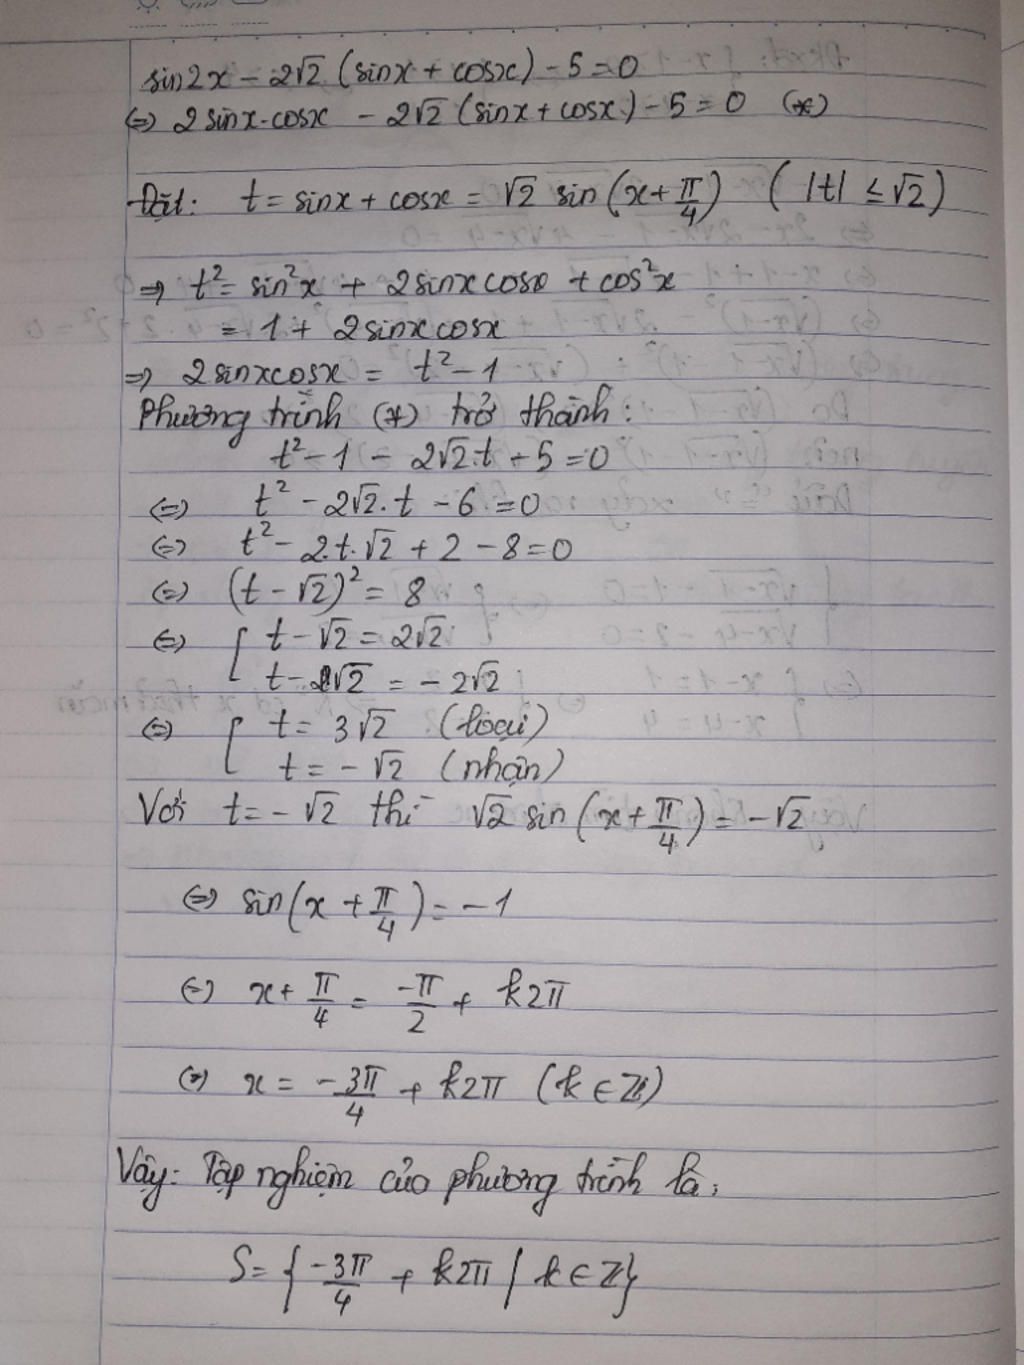 sin2x - 2√2 (sinx + cosx) - 5 = 0
(=) 2 sinx.cosx - 2√2 (sinx + cosx) - 5 = 0 (*)
Đặt: t = sinx + cosx = √2 sin(x + π/4) ( |t| ≤ √2 )
=> t² = sin²x + 2sinxcosx + cos²x
= 1 + 2sinxcosx
=> 2sinxcosx = t² - 1
Phương trình (*) trở thành:
t² - 1 - 2√2.t - 5 = 0
(=) t² - 2√2.t - 6 = 0
(=) t² - 2.t.√2 + 2 - 8 = 0
(=) (t - √2)² = 8
(=) [ t - √2 = 2√2
t - √2 = -2√2
(=) [ t = 3√2 (loại)
t = -√2 (nhận)
Với t = -√2 thì √2 sin(x + π/4) = -√2
(=) sin(x + π/4) = -1
(=) x + π/4 = -π/2 + k2π
(=) x = -3π/4 + k2π (k ∈ Z)
Vậy: Tập nghiệm của phương trình là:
S = { -3π/4 + k2π / k ∈ Z}